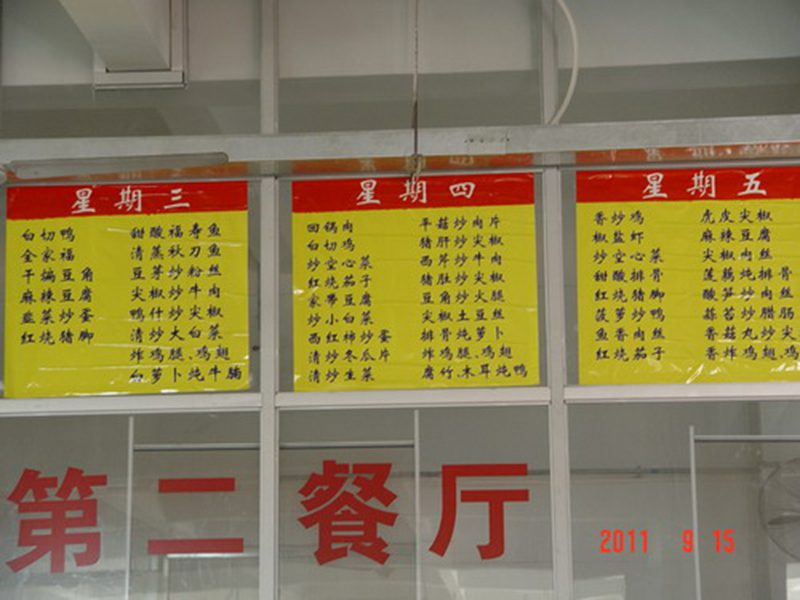 星期三
白切鸭
全家福
干煸豆角
麻辣豆腐
韭菜炒蛋
红烧猪脚
甜酸福寿鱼
清蒸秋刀鱼
豆芽炒粉丝
尖椒炒牛肉
鸭什炒尖椒
清炒大白菜
炸鸡腿、鸡翅
白萝卜炖牛腩
星期四
回锅肉
白切鸡
炒空心菜
红烧茄子
家常豆腐
炒小白菜
西红柿炒蛋
清炒冬瓜片
清炒生菜
平菇炒肉片
猪肝炒尖椒
西芹炒牛肉
猪肚炒尖椒
豆角炒火腿
尖椒土豆丝
排骨炖萝卜
炸鸡腿、鸡翅
腐竹、木耳炖鸭
星期五
香炒鸡
椒盐虾
炒空心菜
甜酸排骨
红烧猪脚
菠萝炒鸭
鱼香肉丝
红烧茄子
虎皮尖椒
麻辣豆腐
尖椒肉丝
莲藕炖排骨
酸笋炒肉丝
蒜苔炒腊肠
香菇丸炒尖
香炸鸡翅、鸡
第二餐厅
2011 9 15